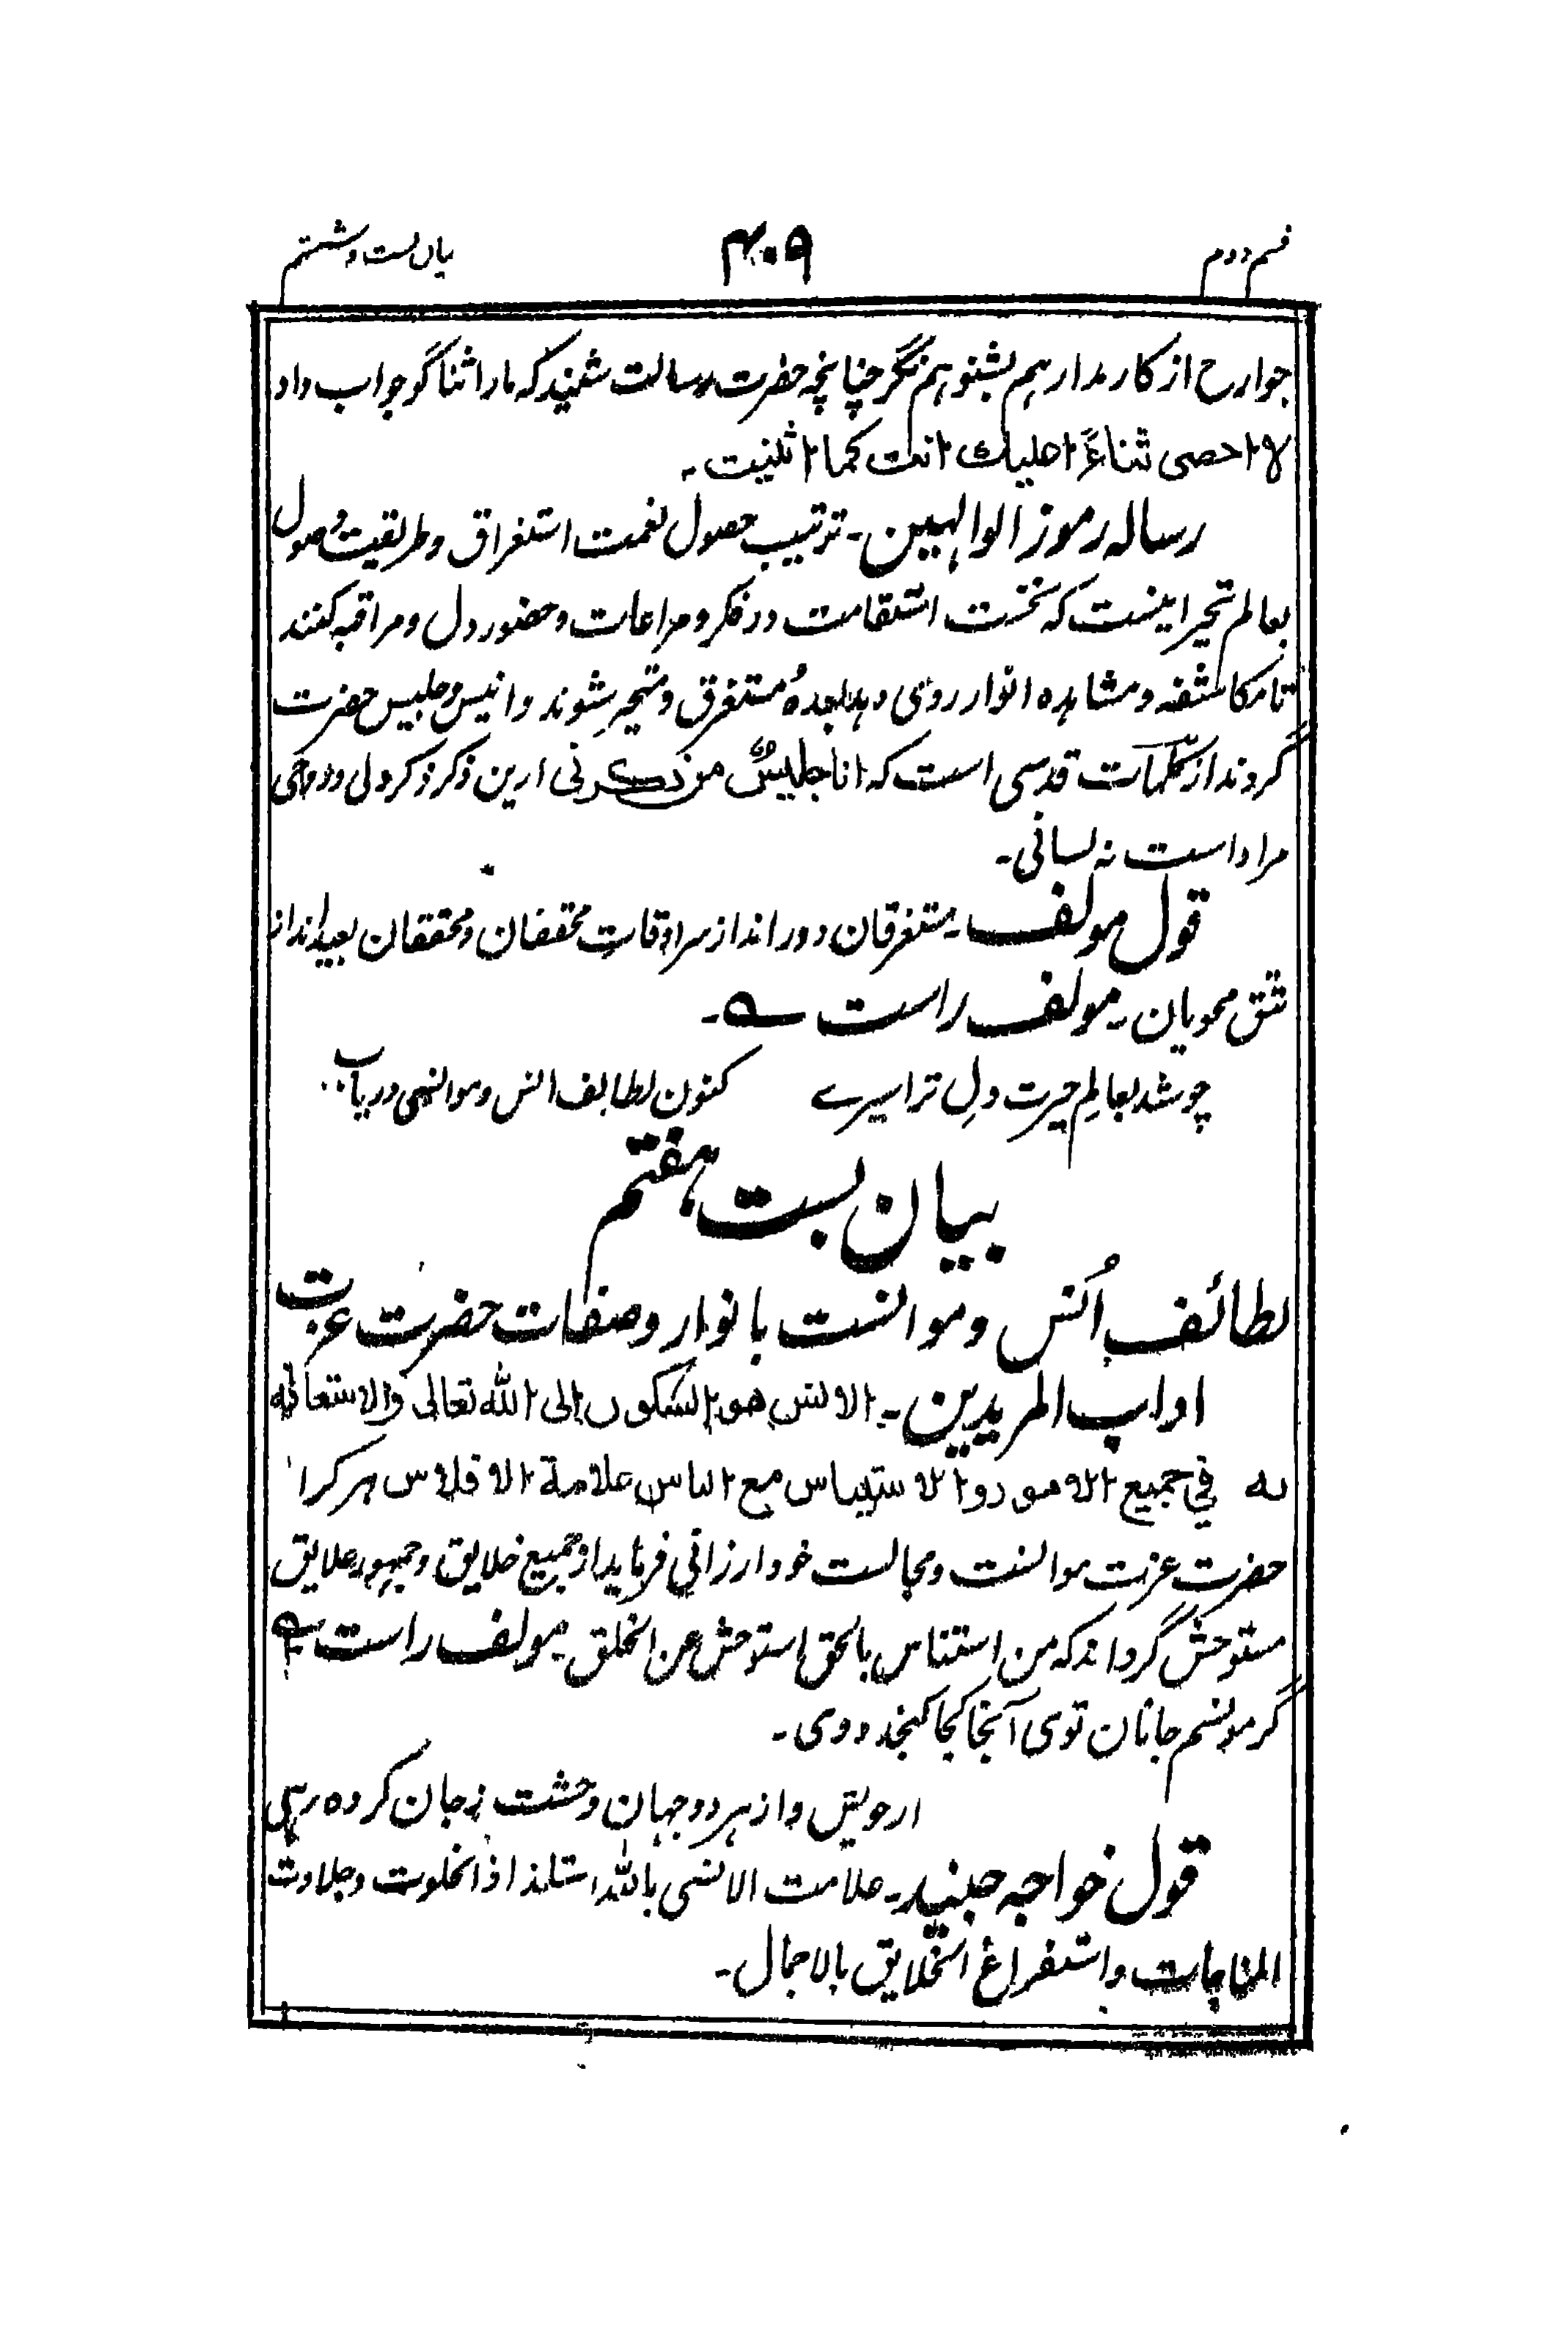 قسم دوم
۴۰۹
بیان بست و هشتم
جوارح از کار مدار هم بشنو هم نگر چنانچه حضرت رسالت شنید که مارا ثنا گو جواب داد
لا احصی ثناءً علیک انت کما اثنیت۔
رساله رموز الوالہین۔ ترتیب حصول نعمت استغراق و طریقت وصول
بعالم تحیر اینست که نخست استقامت در فکر و مراعات و حضور دل و مراقبه کنند
تا مکاشفه و مشاهده انوار روی دهد بعده مستغرق و متحیر شوند و انیس و جلیس حضرت
گردند از کلمات قدسی است که انا جلیسٌ من ذکرنی ازین ذکر ذکر دلی و روحی
مراد است نه لسانی۔
قول مولف۔ مستغرقان دور اند از سرادقات محققان و محققان بعید اند از
تتق محویان۔ مولف راست ؎۔
چو شد بعالم حیرت دلِ ترا سیرے کنون لطایف انس و موانسی دریاب
بیان بست هفتم
لطائف اُنس و موانست بانوار و صفات حضرت عزت
اداب المریدین۔ الانس هو السکون الی الله تعالی والاستعانة
به فی جمیع الامور و الاستیناس مع الناس علامة الافلاس هر کرا
حضرت عزت موانست و مجالست خود ارزانی فرماید از جمیع خلایق و جمهور علایق
مستوحش گرداند که من استناس بالحق استوحش عن الخلق۔ مولف راست ؎
گر مونسم جانان توی آنجا کجا گنجد دوی۔
از خویش و از هر دو جهان وحشت ز جان کرده رهی
قول خواجه جنید۔ علامت الانس بالله استلذاذ الخلوت و حلاوت
المناجات و استفراغ الخلایق بالاجمال۔